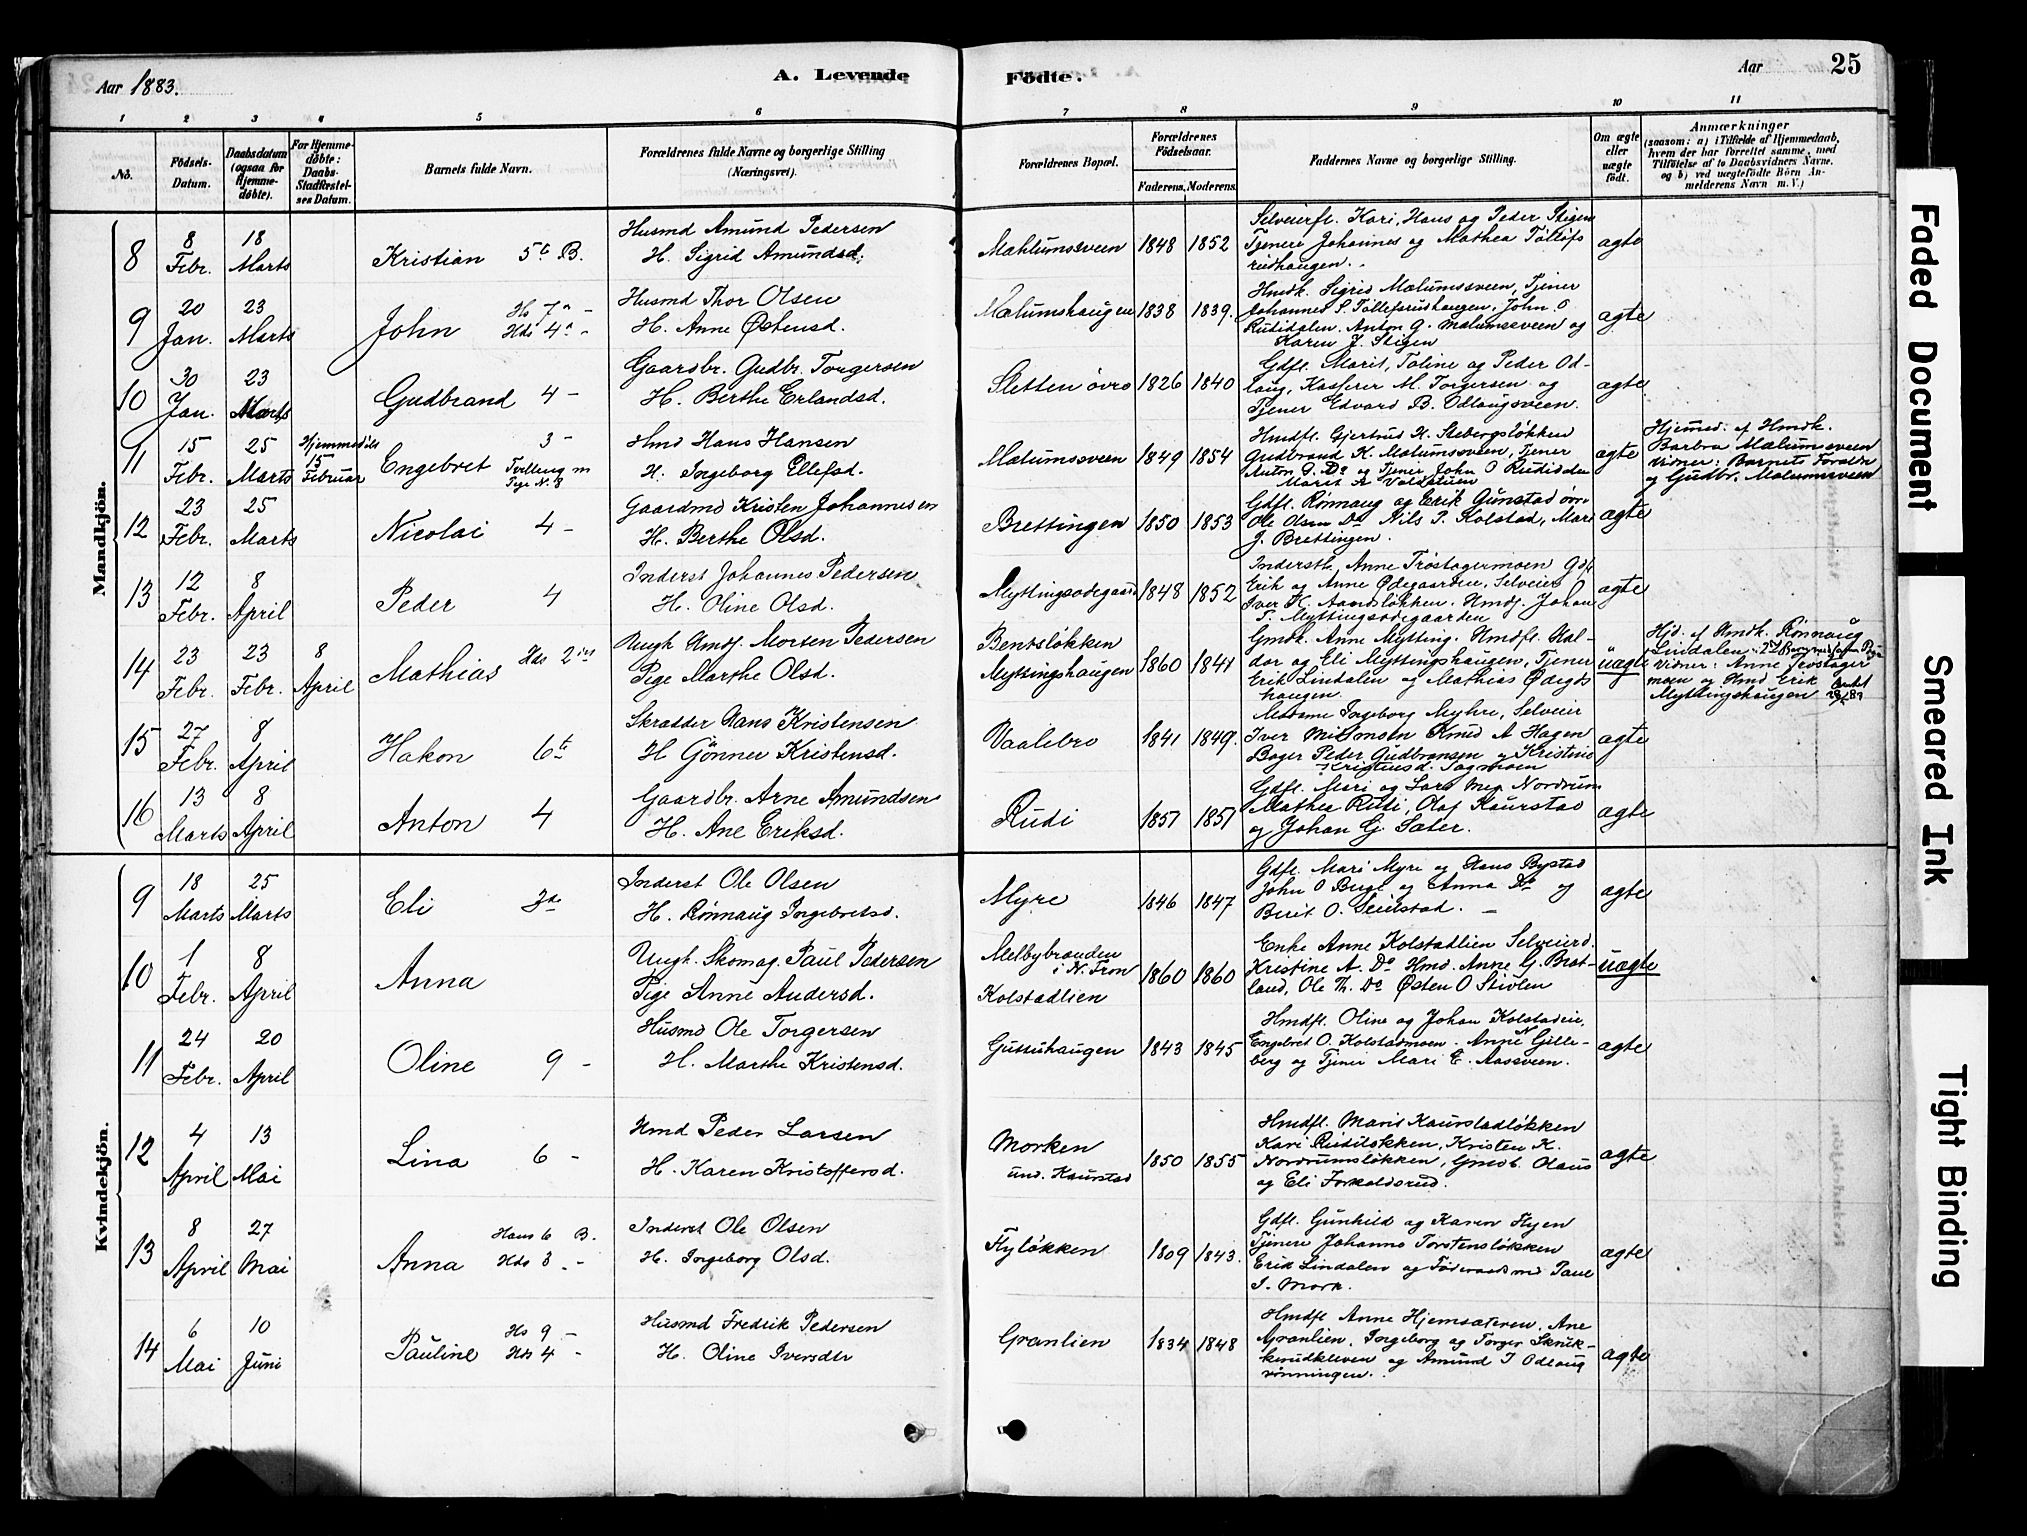 Aar 1883.
A. Levende
Födte.
Aar
25
1 2 3 4 5 6 7 8 9 10 11
No.
Födsels-Datum.
Daabsdatum (ogsaa for Hjemme-döbte).
For Hjemme-döbte: Daabs-Stadfæstel-ses Datum.
Barnets fulde Navn.
Forældrenes fulde Navne og borgerlige Stilling (Næringsvei).
Forældrenes Bopæl.
Forældrenes Födselsaar.
Faderens. Moderens.
Faddernes Navne og borgerlige Stilling.
Om ægte eller uægte födt.
Anmærkninger
(saasom: a) i Tilfælde af Hjemmedaab, hvem der har forrettet samme, med Tilföielse af to Daabsvidners Navne. og b) ved uægtefödte Börn An-melderens Navn m. V.)
Mandkjön.
8
8 Febr.
18 Marts
Kristian 5te B.
Husmd Amund Pedersen
H. Sigrid Amundsd.
Mahlumsveen
1848 1852
Selveierfl. Kari, Hans og Peder Stigen
Tjenere Johannes og Mathea Tollefs
rudhaugen.
ægte
9
20 Jan.
23 Marts
John
Hs 7de -
Hds 4de -
Husmd Thor Olsen
H. Anne Østensd.
Mælumshaugen
1838 1839.
Hmdk. Sigrid Mælumsveen, Tjener
Johannes S. Tolleferudhaugen, John O
Rudidalen. Anton G. Mælumsveen og
Karen J. Stigen
ægte
10
30 Jan.
23 Marts
Gudbrand 4 -
Gaardbr. Gudbr. Torgersen
H. Berthe Erlandsd.
Sletten övre
1826 1840
Gdfl. Marit, Toline og Peder Od-
laug, Kasserer M. Torgersen og
Tjener Edvard B. Odlaugsveen.
ægte
11
15 Febr.
25 Marts
Hjemmedöbt 15 Februar
Engebret
3 -
Tvilling m
Pige N. 8
Hmd Hans Hansen
H. Ingeborg Ellefsd.
Mælumsveen
1849 1854
Hmdfl. Gjertrud H. Stebergsløkken
Gudbrand K. Mælumsveen, Tjener
Anton G. Do og Tjener John O Rudidalen
ægte
Hjemmed. af Hmdk.
Barbra Mælumsveen
Vidner: Barnets Foræld
og Gudbr. Mælumsveen
12
23 Febr.
25 Marts
Nicolai 4 -
Gaardmd Kristen Johannesen
H. Berthe Olsd.
Brettingen
1850 1853
Gdfl. Rønnaug og Erik Gunstad övre
Ole Olsen Do Nils P. Kolstad, Mari
J. Brettingen.
ægte
13
12 Febr.
8 April
Peder 4
Inderst Johannes Pedersen
H. Oline Olsd.
Myttingsødegaard
1848 1852
Inderstk. Anne Trøstagermoen Gdf.
Erik og Anne Ødegaarden, Selveier
Iver K. Aandsløkken. Hmdf. Johan
T. Myttingsødegaarden
ægte
14
23 Febr.
23 Febr.
8 April
Mathias Hds 2det
Ungk Hmdf. Morten Pedersen
Pige Marthe Olsd.
Bentsløkken
Myttingshaugen
1860 1841
Gmdk. Anne Mytting. Hmdfl. Hal-
dor og Eli Myttingshaugen, Tjener
Erik Lindalen og Mathias Ødegds
haugen.
uægte
Hjd. af Hmdk. Rønnaug
Lindalen.
Vidner: Anne Trøstager
moen og Hmd Erik
Myttingshaugen
15
27 Febr.
8 April
Hakon 6te
Skrædder Hans Kristensen
H Gönner Kristensd.
Vaalebro
1841 1849.
Madame Ingeborg Myhre, Selveier
Iver Midtmoen Knud A Hagen
Bager Peder Gudbransen og Kristine
Kristensd. Sagmoen
ægte
16
13 Marts
8 April
Anton 4
Gaardbr. Arne Amundsen
H. Ane Eriksd.
Rudi
1857 1857
Gdfl. Mari og Lars Nordrum
Mathea Rudi, Olaf Kaurstad
og Johan G. Sæter.
ægte
Kvindekjön.
9
18 Marts
25 Marts
Eli 3de
Inderst Ole Olsen
H. Rønnaug Ingebretsd.
Myre
1846 1847
Gdfl. Mari Myre og Hans Bystad
John O Bergl og Anna Do og
Berit O. Seielstad.
ægte
10
1 Febr.
8 April
Anna
Ungk. Skomag. Paul Pedersen
Pige Anne Andersd.
Melbybraaden
i N. Fron
Kolstadlien
1860 1860
Enke Anne Kolstadlien Selveierd.
Kristine A. Do Hmd. Anne G. Brat-
land, Ole Th. Do Østen O Stivlen
uægte
11
24 Febr.
20 April
Oline 9 -
Husmd Ole Torgersen
H. Marthe Kristensd.
Gussuhaugen
1843 1845
Hmdfl. Oline og Johan Kolstadeie,
Engebret O. Kolstadmoen. Anne N Gille-
berg og Tjener Mari E. Aasveen.
ægte
12
4 April
13 Mai
Lina 6 -
Hmd Peder Larsen
H. Karen Kristoffersd.
Morken
und. Kaurstad
1850 1855
Hmdfl. Marit Kaurstadløkken
Kari Rudiløkken, Kristen K.
Nordrumsløkken, Gmdt. Olaus
og Eli Forkaldsrud.
ægte
13
8 April
27 Mai
Anna
Hans 6 B.
Hds 3 -
Inderst Ole Olsen
H. Ingeborg Olsd.
Flyløkken
1809 1843.
Gdfl. Gunhild og Karen Flyen
Tjenere Johanne Torstensløkken
Erik Lindalen og Föderaadsmd Paul
I. Mork.
ægte
14
6 Mai
10 Juni
Pauline
Hs 9 -
Hds 4 -
Husmd Fredrik Pedersen
H. Oline Iversdtr
Granlien
1834 1848
Hmdfl Anne Hjemsæteren, Ane
Granlien, Ingeborg og Torger Skruk-
kerudkleven og Amund I Odlaug
rønningen.
ægte
Faded Document
Smeared Ink
Tight Binding